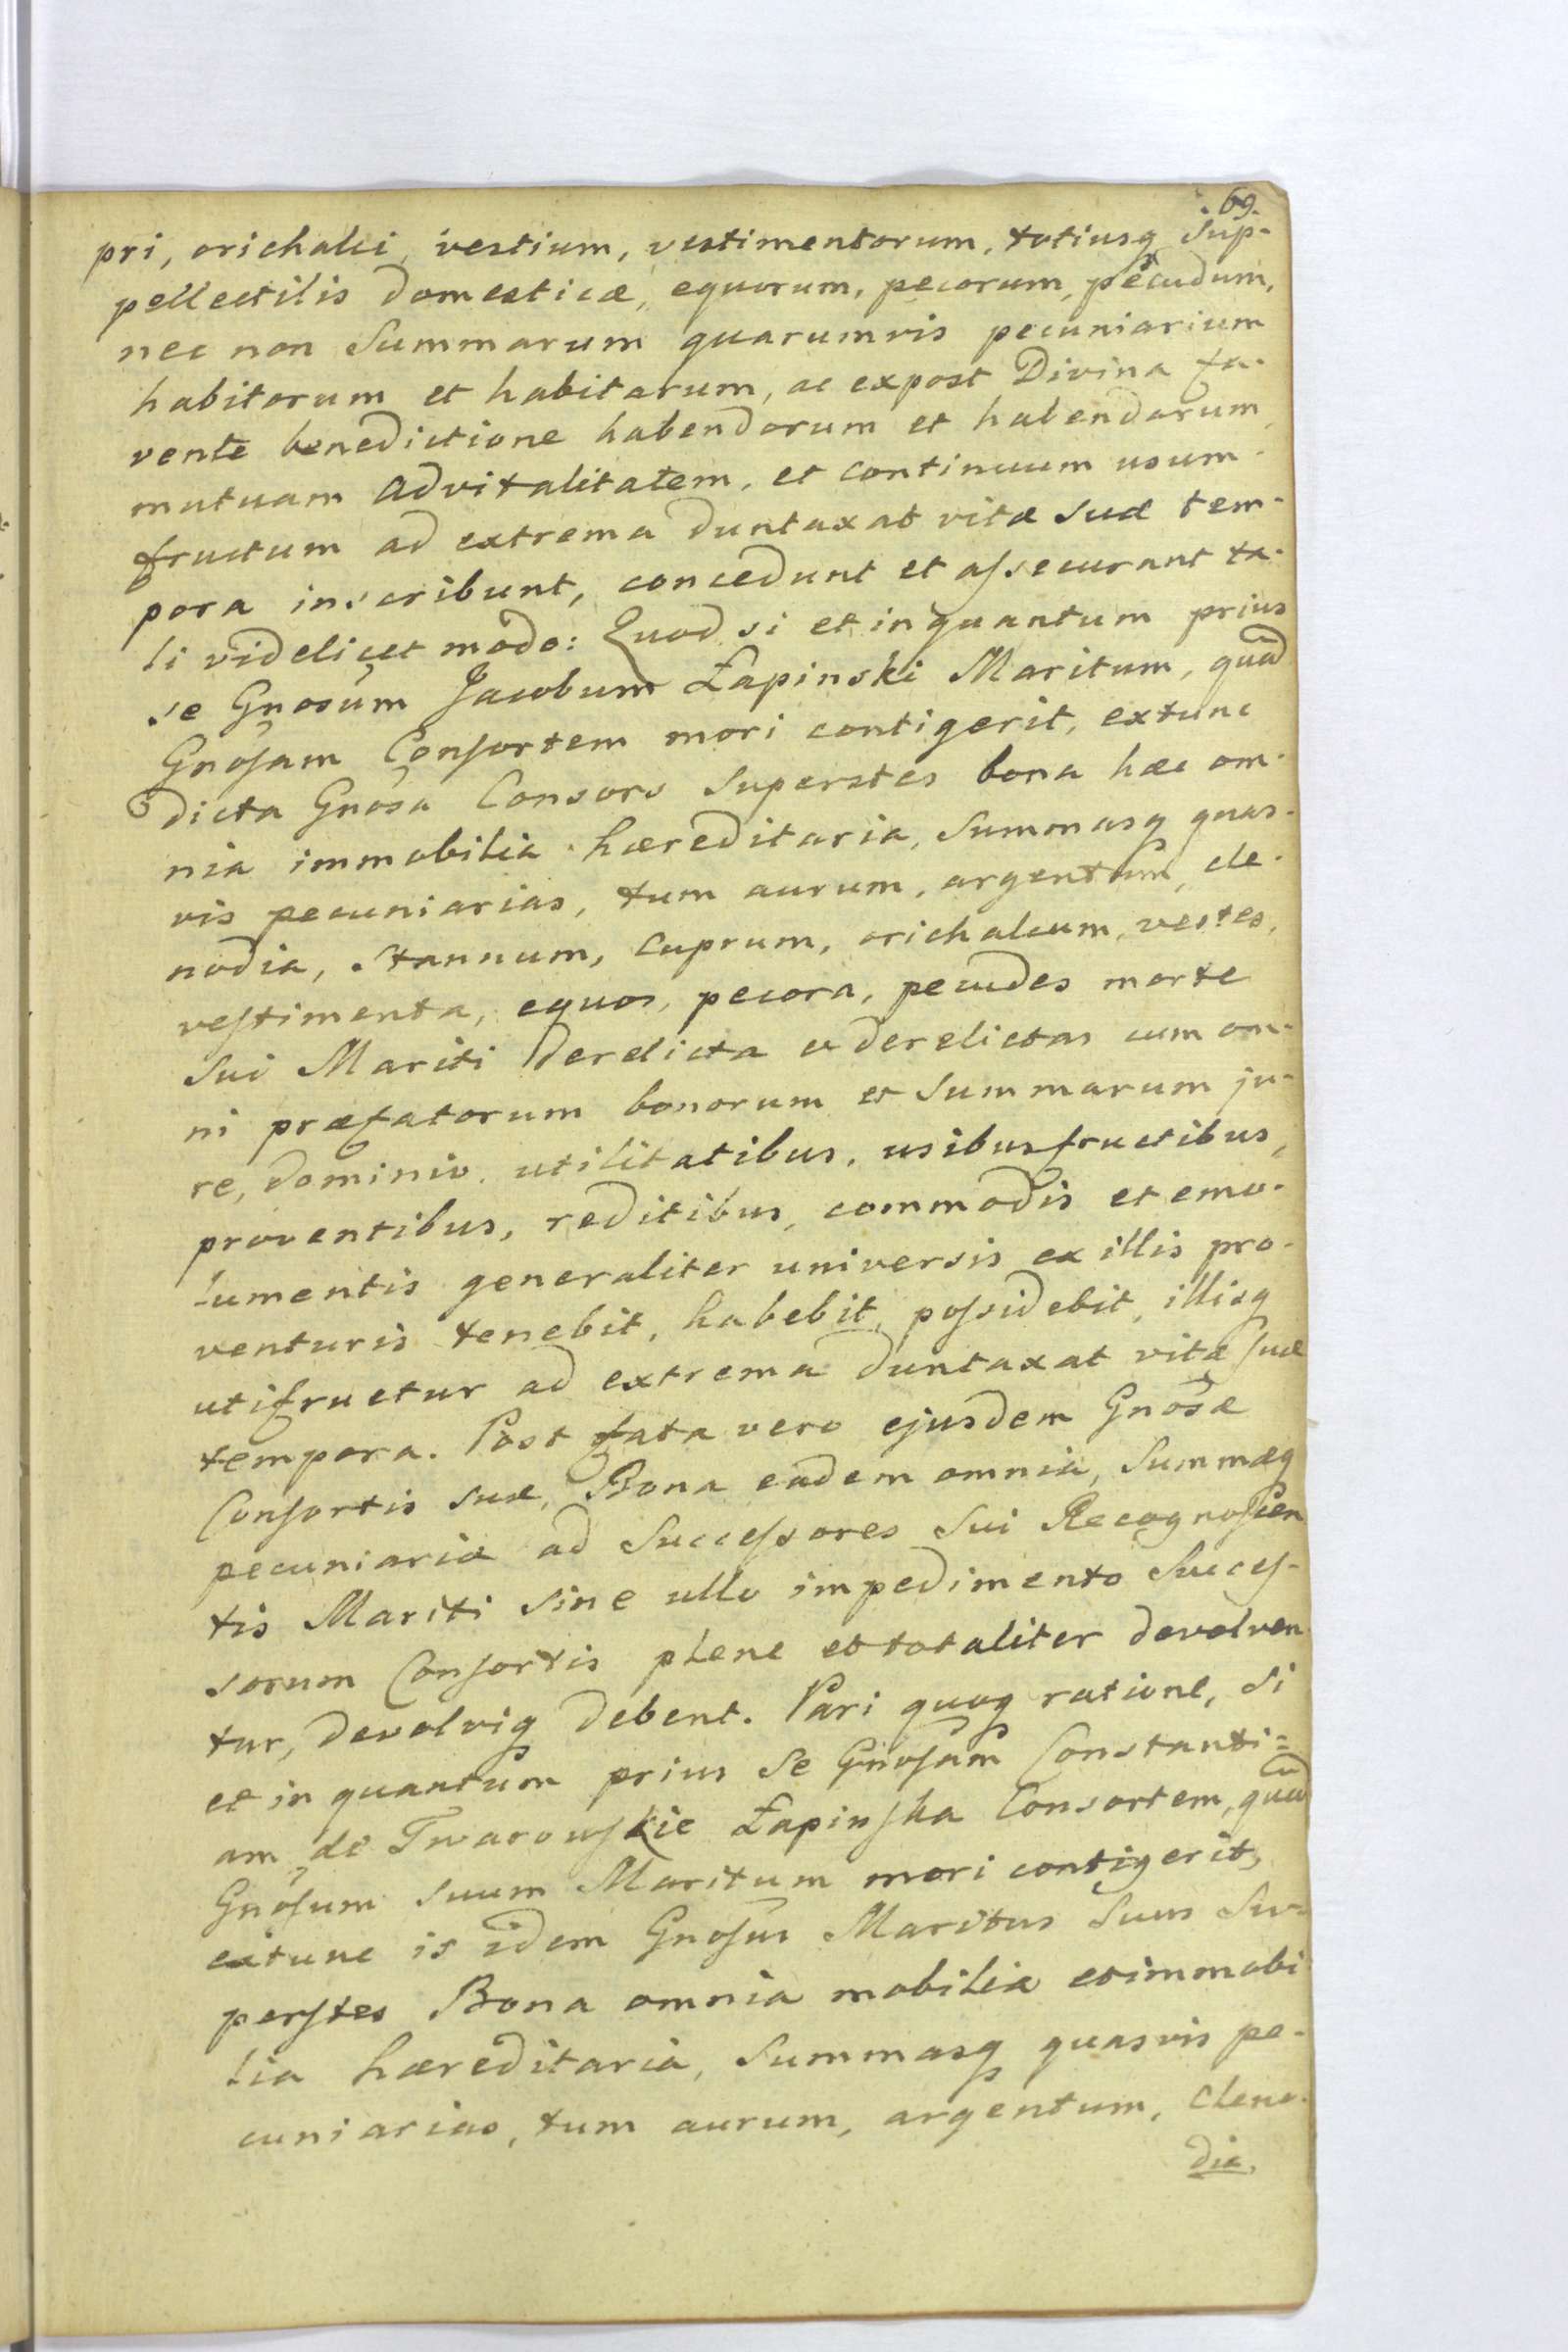 .69.
pri, orichalci, vestium, vestimentorum, totiusq Sup-
pellectilis domesticæ, equorum, pecorum, pecudum,
nec non Summarum quarumvis pecuniarium
habitorum et habitarum, ac expost Divina fa-
vente benedictione habendorum et habendarum,
mutuam advitalitatem, et continuum usum-
fructum ad extrema duntaxat vitæ suæ tem-
pora inscribunt, concedunt et aſsecurant ta-
li videlicet modo: Quod si et inquantum prius
se Gnosum Jacobum Łapinski Maritum, quā
Gnoſam Conſortem mori contigerit, extunc
dicta Gnosa Consors Superstes bona hæc om-
nia immobilia hæreditaria, Summasq quas-
vis pecuniarias, tum aurum, argentum, cle-
nodia, Stannum, Cuprum, orichalcum, vestes,
veſtimenta, equos, pecora, pecudes morte
Sui Mariti derelicta et derelictas cum om-
ni præfatorum bonorum et Summarum ju-
re, dominio, utilitatibus, usibusfructibus,
proventibus, reditibus, commodis et emo-
lumentis generaliter universis ex illis pro-
venturis tenebit, habebit, poſsidebit, illisq
utifruetur ad extrema duntaxat vitæ ſuæ
tempora. Post fata vero ejusdem Gnosæ
Conſortis suæ, Bona eadem omnia, Summæq
pecuniariæ ad Succeſsores Sui Recognoſcen
tis Mariti Sine ullo impedimento Succeſ-
sorum Conſortis plene et totaliter devolven
tur, devolviq debent. Pari quoq ratione, Si
et in quantum prius Se Gnoſam Constanti=
am de Twarowſkie Łapinſka Consortem, quā
Gnoſum Suum Maritum mori contigerit,
extunc is idem Gnoſus Maritus Suus Su=
perſtes Bona omnia mobilia et immobi
lia hæreditaria, Summasq quasvis pe-
cuniarias, tum aurum, argentum, Cleno-
dia,